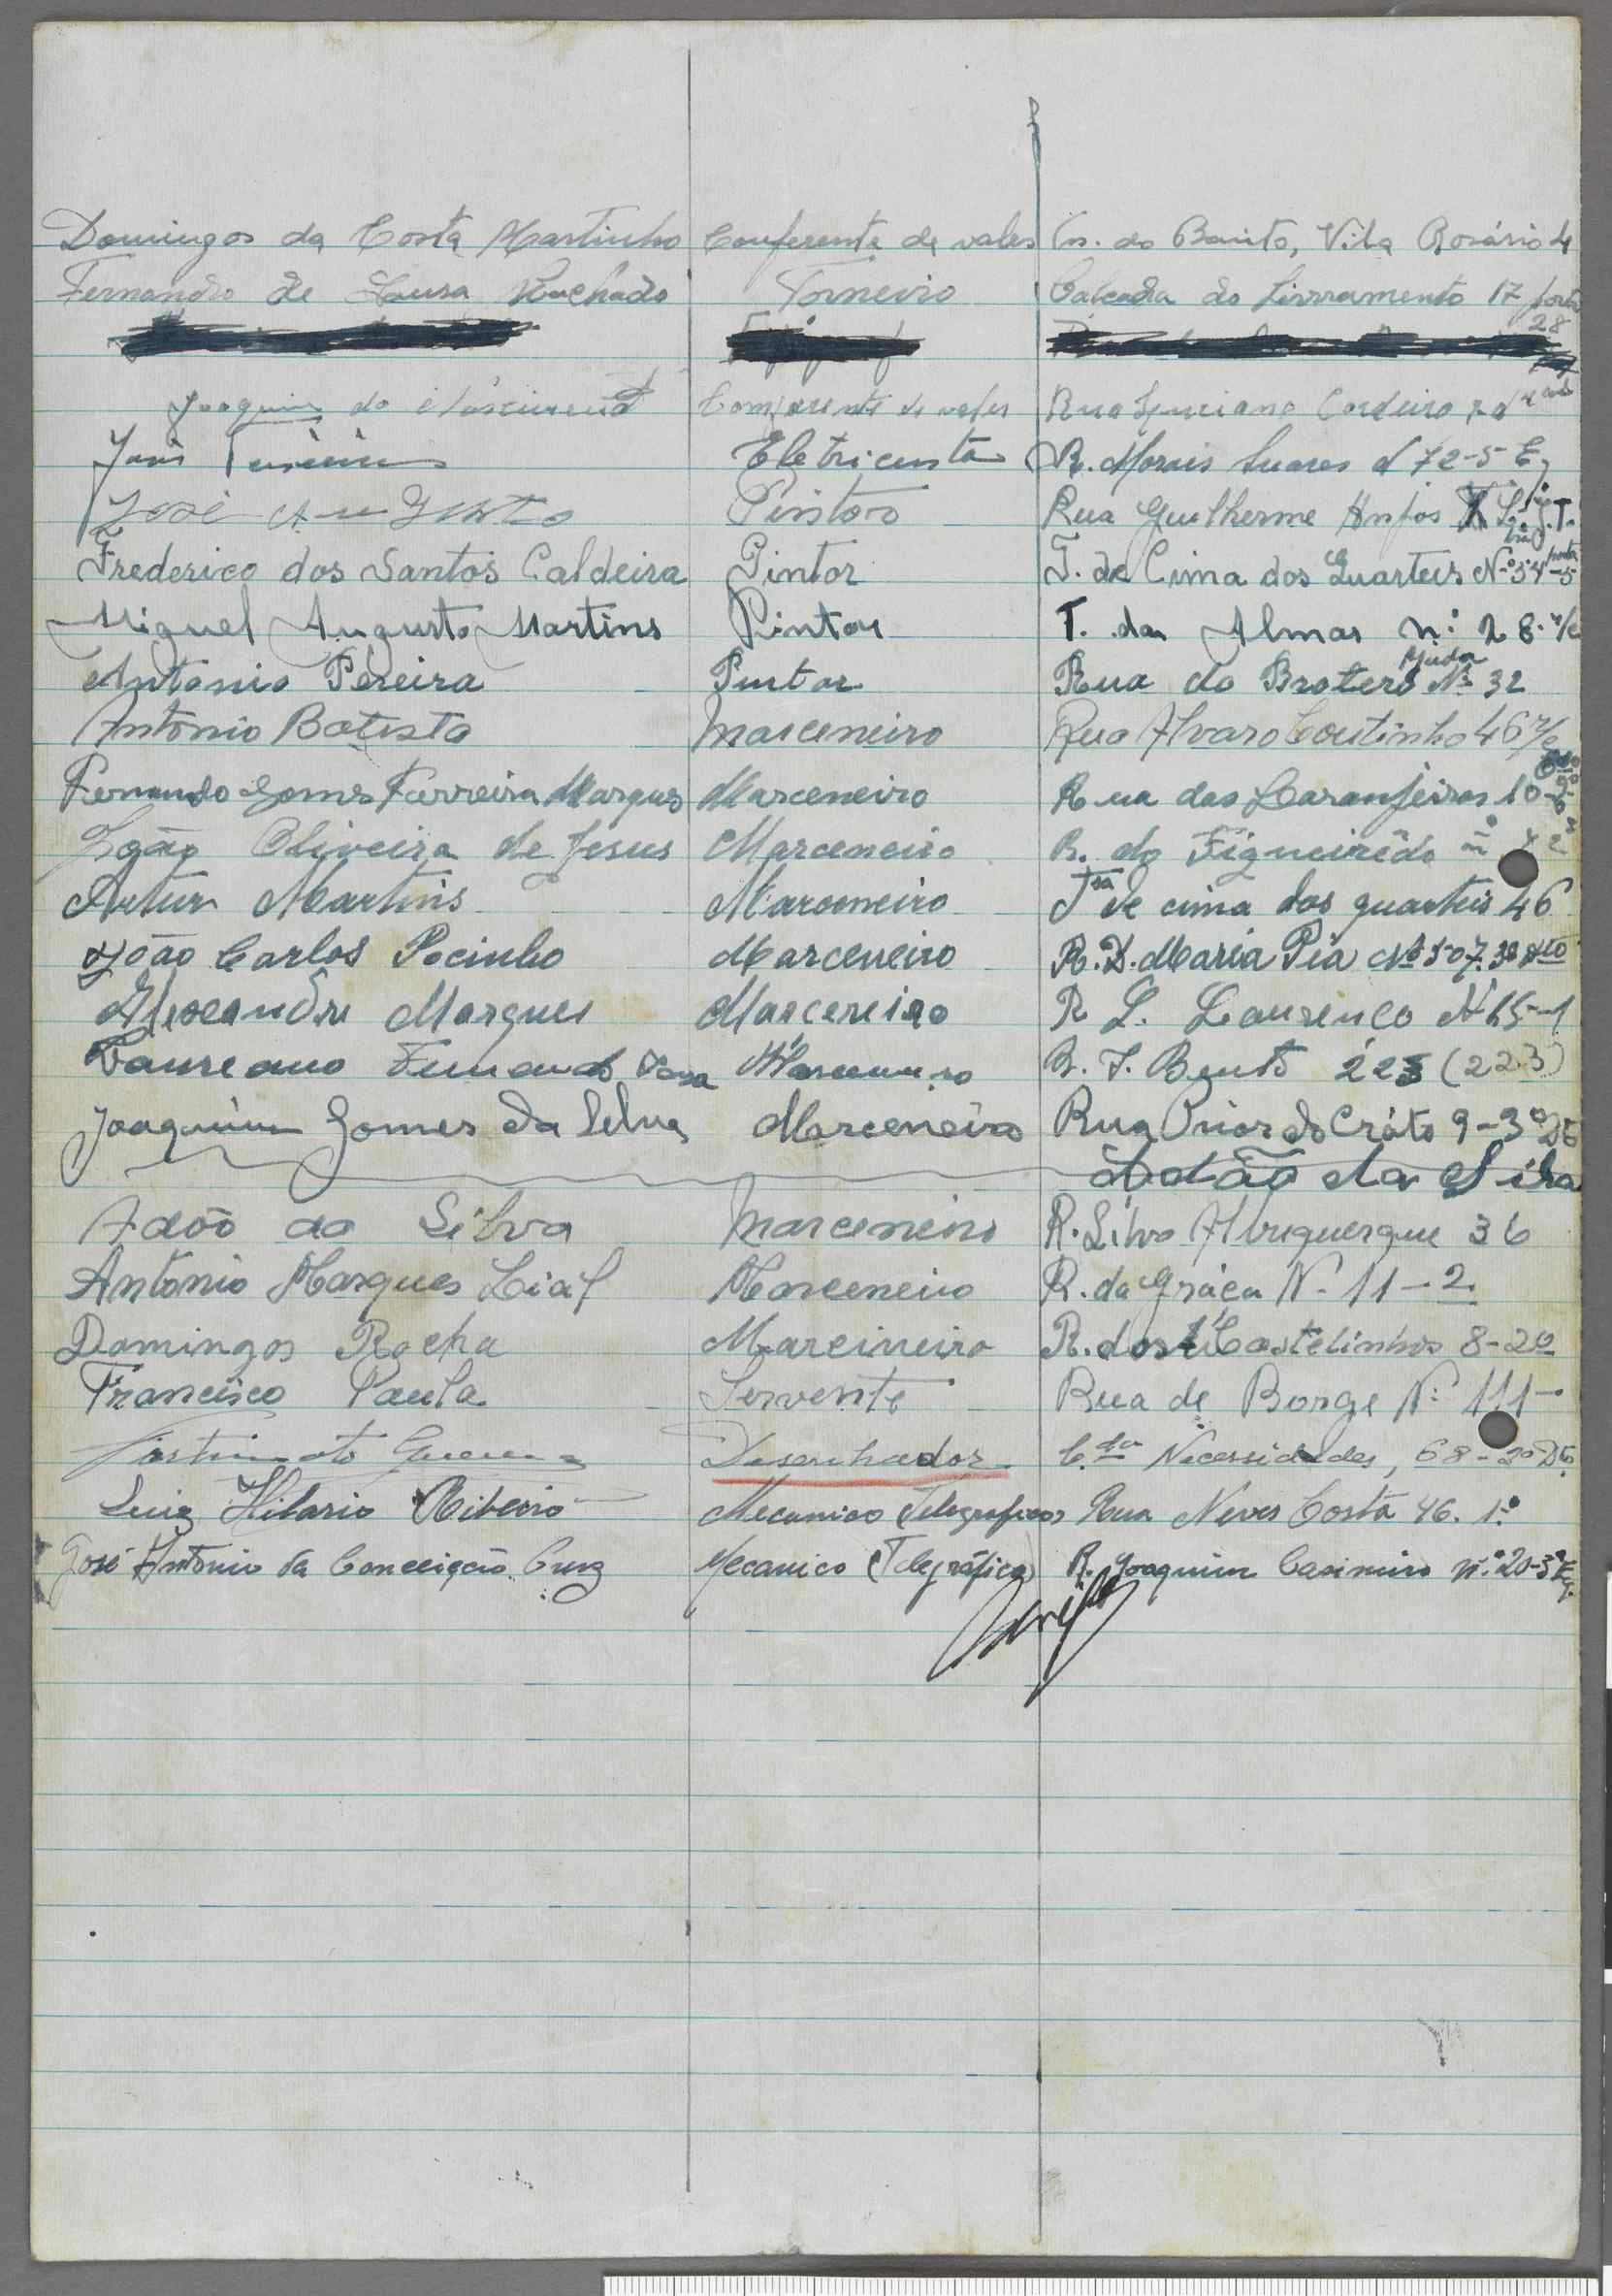 Domingos da Costa Martinho Conferente de vales Cs. do Bairto, Vila Rosário 4
Fernando de Sousa Machado Torneiro Calcadra do Livrramento 17 porta 28
Joaquim do Nascimento Comferente de vales Rua Luciano Cordeiro
José Eletricista R. Morais Suares 172-5 E
José Augusto Pintor Rua Guilherme Anjos
Frederico dos Santos Caldeira Pintor T. de Cima dos Quarteis Nº 54 porta 5
Miguel Augusto Martins Pintor T. das Almas n.º 28. r/c
Antonio Pereira Pintor Rua do Brotero Nº 32 Ajuda
António Batista Marceneiro Rua Alvaro Coutinho 46 r/c
Fernando Gomes Ferreira Marques Marceneiro Rua das Laranjeiras 10
João Oliveira de Jesus Marceneiro R. do Figueirêdo nº
Artur Martins Marceneiro Tsa de cima dos quarteis 46
João Carlos Pocinho Marceneiro R. D. Maria Pia Nº 507. 3º
Alexandre Marques Marceneiro R. S. Lourenco Nº 15-1
Laureano Fernando Marceneiro R. S. Bento 223 (223)
Joaquim Gomes da Selva Marceneiro Rua Prior do Cráto 9-3º Dº
Adão da Silva
Adão da Silva Marceneiro R. Silva Albuquerque 36
António Marques Lial Marceneiro R. da Gráca N. 11-2.
Domingos Rocha Marcineiro R. dos Castelinhos 8-2º
Francisco Paula Servente Rua de Borge Nº 111
Guerra Desenhador C.da Necessidades, 68-2º Dº
Luiz Hilario Ribeiro Mecanico (Telegrafico) Rua Neves Costa 46. 1.º
José António da Conceição Cruz Mecanico (Telegráfico) R. Joaquim Casimiro n.º 20-3º Eq.